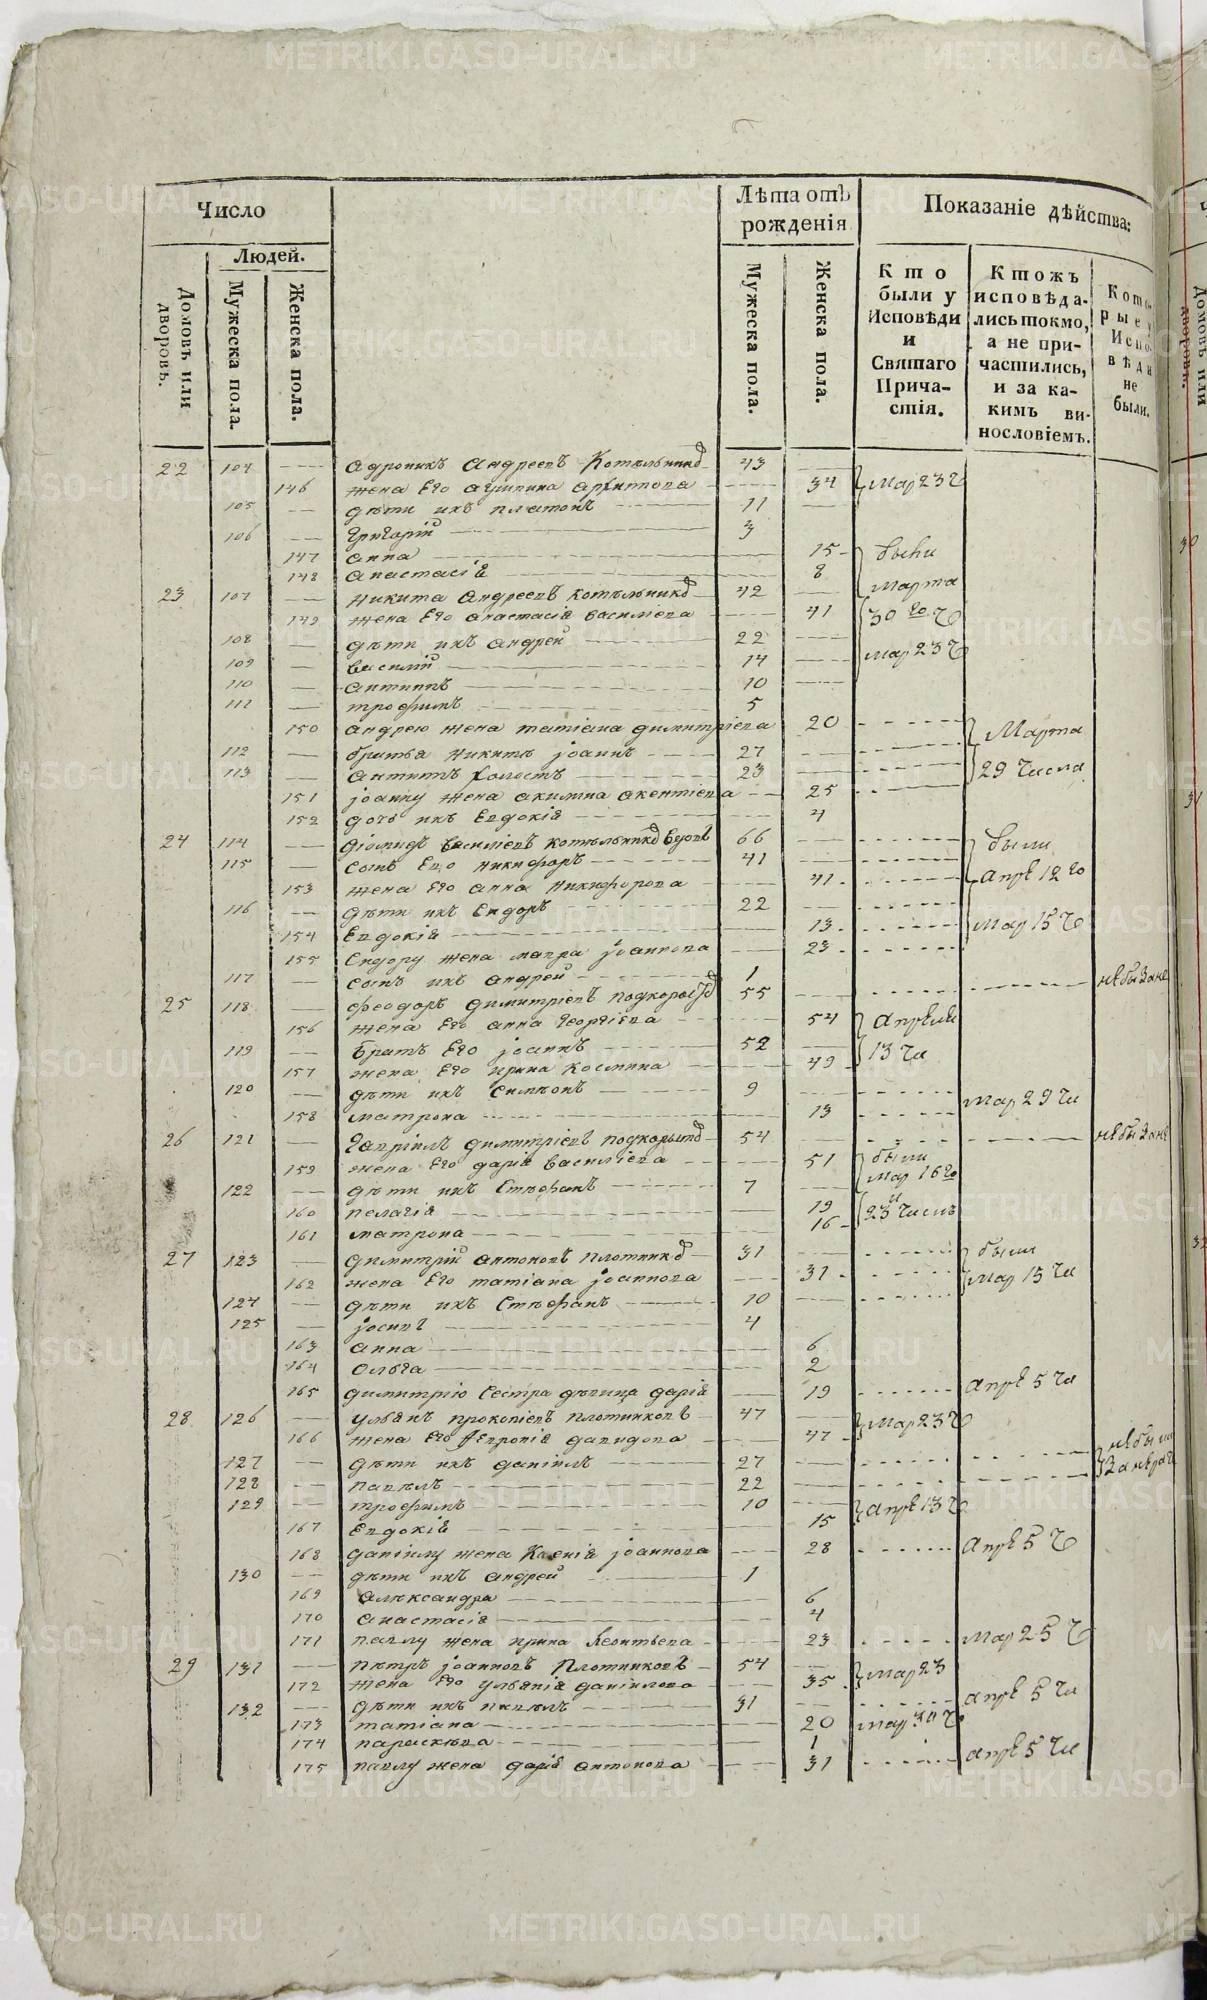 METRIKI.GASO-URAL.RU
Число
Лѣта отъ рожденія
Показаніе дѣйства:
Людей.
Домовъ или дворовъ.
Мужеска пола.
Женска пола.
Мужеска пола.
Женска пола.
Кто были у Исповѣди и Святаго Причастія.
Ктожъ исповѣдались токмо, а не причастились, и за какимъ винословіемъ.
Которые у Исповѣди не были.
22 104 Адроникъ Андреевъ Котельникѡ 43
146 жена Его Агрипина Архипова 34 Мар 23 Ч
105 дѣти ихъ Платонъ 11
106 Григорій 3
147 Анна 15 были
148 Анастасіѧ 8
23 107 Никита Андреевъ Котельникѡ 42 Марта
149 жена Его Анастасіѧ Василіева 41 30 го Ч
108 дѣти ихъ Андрей 22
109 Василий 14 Мар 23 Ч
110 Антипъ 10
111 Трофимъ 5
150 Андрею жена Татіана Димитріева 20 Марта
112 братьѧ Никитѣ Іоаннъ 27
113 Антипъ холостъ 23 29 Числа
151 Іоанну жена Акилина Акентіева 25
152 дочь ихъ Евдокіѧ 4
24 114 Діомидъ Василіевъ Котельникѡ вдовъ 66 были
115 сынъ Его Никифоръ 41
153 жена Его Анна Никифорова 41 Апрѣ 12 го
116 дѣти ихъ Ендоръ 22
154 Евдокіѧ 13 Мар 15 Ч
155 Ендору жена Мавра Іоаннова 23
117 сынъ ихъ Андрей 1
25 118 Феодоръ Димитріевъ 55
156 жена Его Анна Георгіева 54 Апрѣлѧ
119 братъ Его Іоаннъ 52 13 Чи
157 жена Его Ирина Космина 49
120 дѣти ихъ Симеонъ 9
158 Матрона 13 Мар 29 Чи
26 121 Гавріилъ Димитріевъ 54
159 жена Его Даріѧ Василіева 51 были
122 дѣти ихъ Стефанъ 7 Мар 16 го
160 Пелагіѧ 19 и
161 Матрона 16 23 Числъ
27 123 Димитрій Антоновъ Плотникѡ 31 были
162 жена Его Татіана Іоаннова 31 Мар 15 Чи
124 дѣти ихъ Стефанъ 10
125 Іосивъ 4
163 Анна 6
164 Ольга 2
165 Димитрію сестра дѣвица Даріѧ 19 Апрѣ 5 Чи
28 126 Ульѧнъ Прокопіевъ Плотниковъ 47 Мар 23 Ч
166 жена Его Февроніѧ Давидова 47
127 дѣти ихъ Даніилъ 27
128 Павелъ 22
129 Трофимъ 10 Апрѣ 13 Ч
167 Евдокіѧ 15
168 Даніилу жена Ксеніѧ Іоаннова 28 Апрѣ 5 Ч
130 дѣти ихъ Андрей 1
169 Александра 6
170 Анастасіѧ 4
171 Павлу жена Ирина Леонтьева 23 Мар 25 Ч
29 131 Петръ Іоанновъ Плотниковъ 54 Мар 23
172 жена Его Ульѧніѧ Даніилова 35
132 дѣти ихъ Павелъ 31 Апрѣ 5 Чи
173 Татіана 20 Мар 30 Ч
174 Параскева 1
175 Павлу жена Даріѧ Антонова 31 Апрѣ 5 Чи